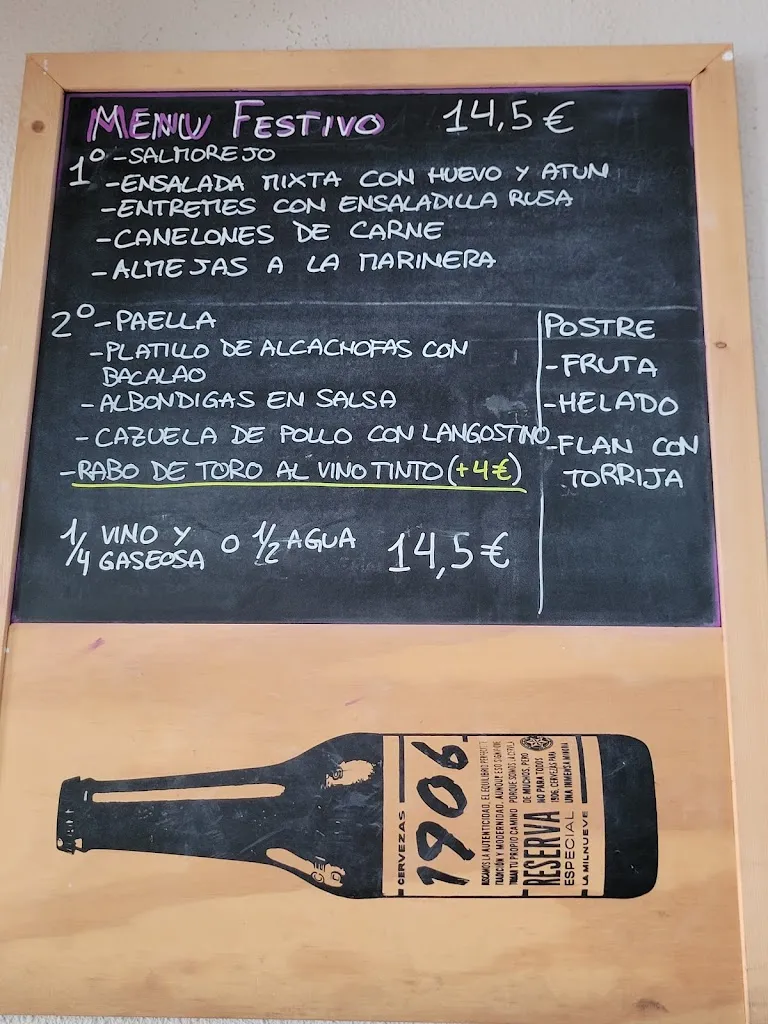 MENU FESTIVO 14,5 €
1º -SALMOREJO
-ENSALADA MIXTA CON HUEVO Y ATUN
-ENTREMES CON ENSALADILLA RUSA
-CANELONES DE CARNE
-ALMEJAS A LA MARINERA
2º -PAELLA
-PLATILLO DE ALCACHOFAS CON
BACALAO
-ALBONDIGAS EN SALSA
-CAZUELA DE POLLO CON LANGOSTINO
-RABO DE TORO AL VINO TINTO (+4€)
POSTRE
-FRUTA
-HELADO
-FLAN CON
TORRIJA
1/4 VINO Y
GASEOSA O 1/2 AGUA 14,5€
CERVEZAS
1906
LA AUTENTICIDAD, EL EQUILIBRIO
TRADICIÓN Y MODERNIDAD. AUNQUE ESO SIGNIFIQUE
TU PROPIO CAMINO
DE MUCHOS, PERO
NO PARA TODOS
1906, CERVEZAS PARA
UNA INMENSA MINORÍA
RESERVA
ESPECIAL
LA MILNUEVE